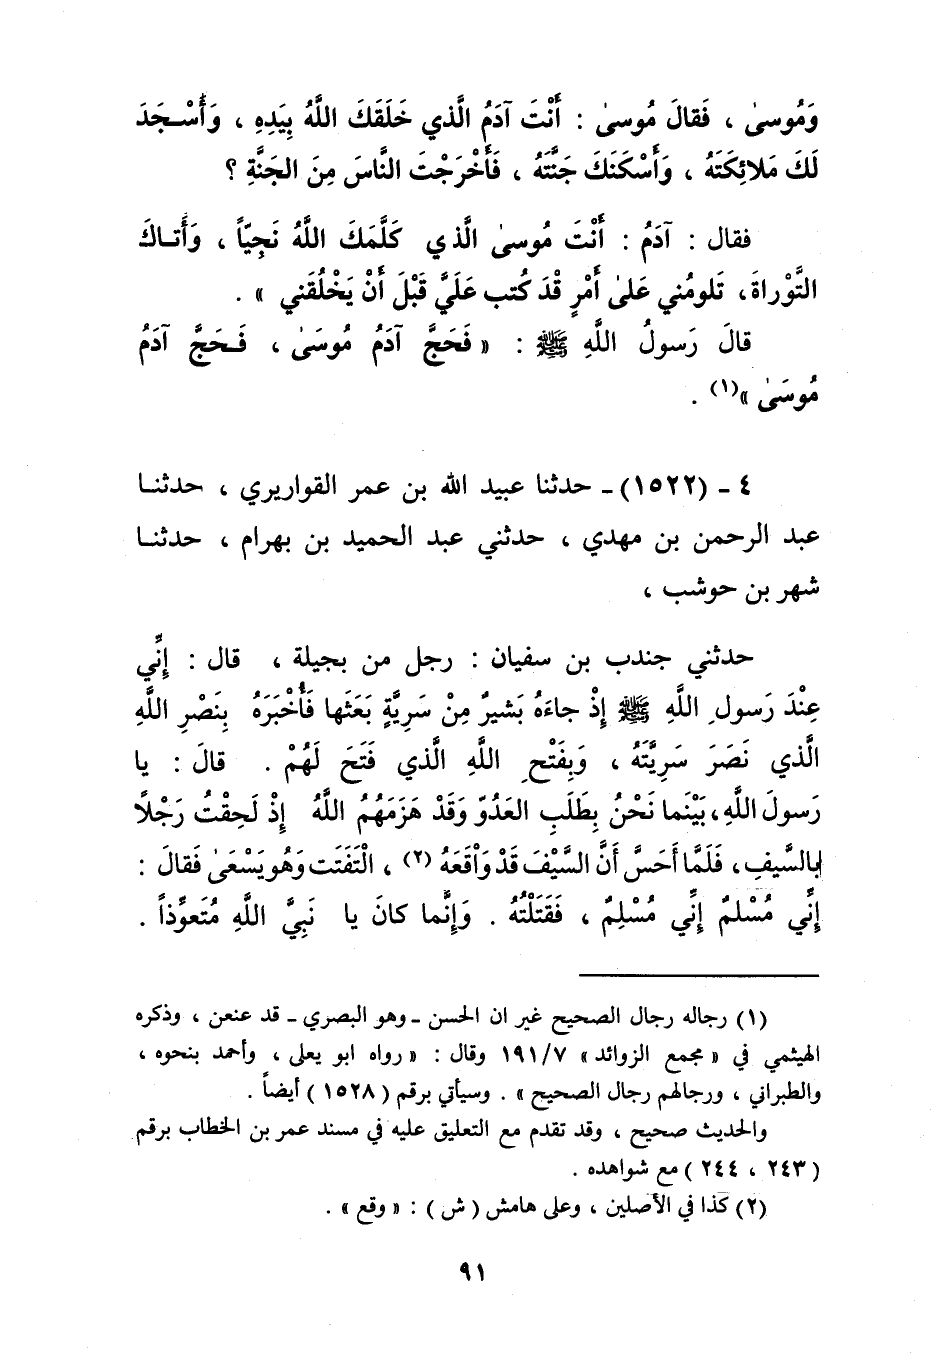 وَمُوسىٰ ، فَقالَ مُوسىٰ : أَنْتَ آدَمُ الَّذي خَلَقَكَ اللَّهُ بِيَدِهِ ، وَأَسْجَدَ
لَكَ مَلائِكَتَهُ ، وَأَسْكَنَكَ جَنَّتَهُ ، فَأَخْرَجْتَ النَّاسَ مِنَ الجَنَّةِ ؟
فقال : آدَمُ : أَنْتَ مُوسىٰ الَّذي كَلَّمَكَ اللَّهُ نَجِيّاً ، وَأَتاكَ
التَّوْراةَ، تَلومُني عَلىٰ أَمْرٍ قَدَ كُتب عَلَيَّ قَبْلَ أَنْ يَخْلُقَني » .
قالَ رَسولُ اللَّهِ ﷺ : « فَحَجَّ آدَمُ مُوسَىٰ ، فَحَجَّ آدَمُ
مُوسَىٰ »(١) .
٤ ـ (١٥٢٢) ـ حدثنا عبيد الله بن عمر القواريري ، حدثنا
عبد الرحمن بن مهدي ، حدثني عبد الحميد بن بهرام ، حدثنا
شهر بن حوشب ،
حدثني جندب بن سفيان : رجل من بجيلة ، قال : إِنِّي
عِنْدَ رَسولِ اللَّهِ ﷺ إِذْ جاءَهُ بَشيرٌ مِنْ سَرِيَّةٍ بَعَثَها فَأُخْبَرَهُ بِنَصْرِ اللَّهِ
الَّذي نَصَرَ سَرِيَّتَهُ ، وَبِفَتْحِ اللَّهِ الَّذي فَتَحَ لَهُمْ . قالَ : يا
رَسولَ اللَّهِ، بَيْنَما نَحْنُ بِطَلَبِ العَدُوِّ وَقَدْ هَزَمَهُمُ اللَّهُ إِذْ لَحِقْتُ رَجُلًا
بالسَّيفِ، فَلَمَّا أَحَسَّ أَنَّ السَّيْفَ قَدْ وَاْقَعَهُ (٢) ، الْتَفَتَ وَهُوَ يَسْعَىٰ فَقالَ :
إِنِّي مُسْلمٌ إِنِّي مُسْلِمٌ ، فَقَتَلْتُهُ . وَإِنَّما كانَ يا نَبِيَّ اللَّهِ مُتَعوِّذاً .
(١) رجاله رجال الصحيح غير ان الحسن ـ وهو البصري ـ قد عنعن ، وذكره
الهيثمي في « مجمع الزوائد » ١٩١/٧ وقال : « رواه ابو يعلى ، وأحمد بنحوه ،
والطبراني ، ورجالهم رجال الصحيح » . وسيأتي برقم ( ١٥٢٨ ) أيضاً .
والحديث صحيح ، وقد تقدم مع التعليق عليه في مسند عمر بن الخطاب برقم
( ٢٤٣ ، ٢٤٤ ) مع شواهده .
(٢) كذا في الأصلين ، وعلى هامش ( ش ) : « وقع » .
٩١